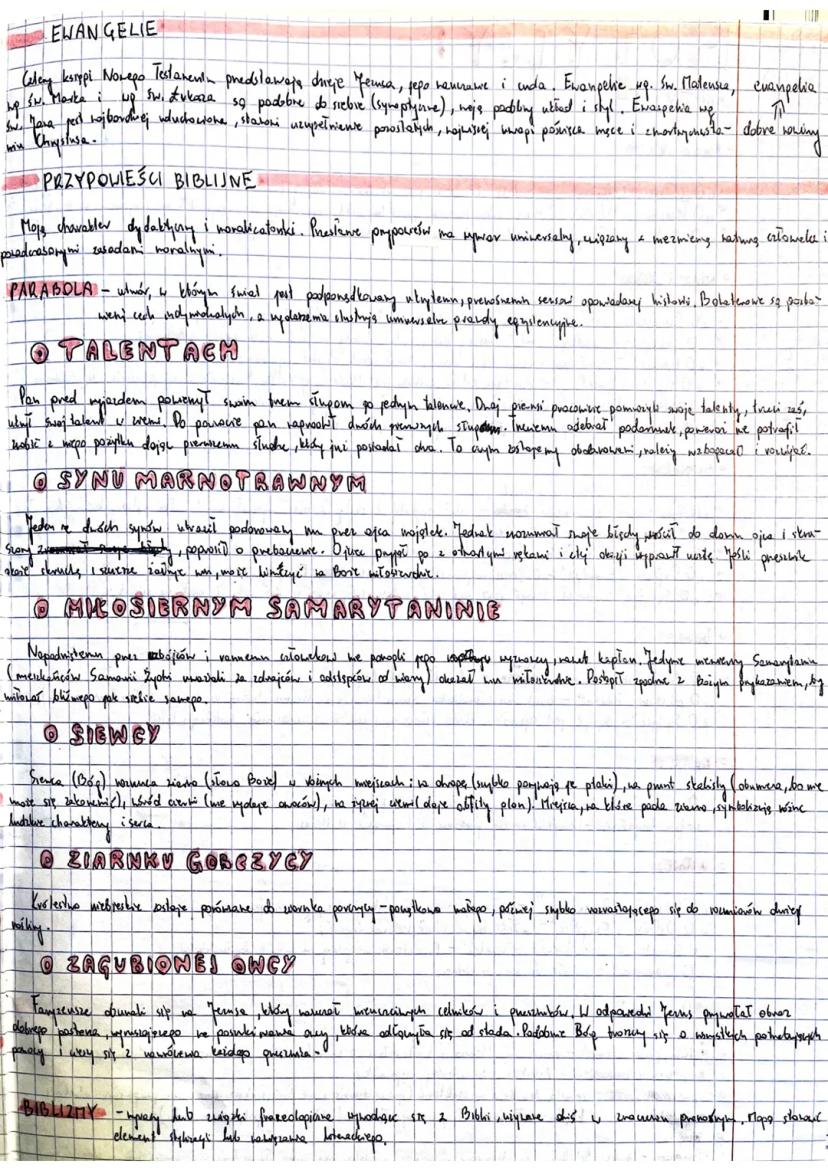 EWANGELIE
Cztery księgi Nowego Testamentu przedstawiają dzieje Jezusa, jego nauczanie i cuda. Ewangelie wg. św. Mateusza, ewangelia
wg św. Marka i wg św. Łukasza są podobne do siebie (synoptyczne), mają podobny układ i styl. Ewangelia wg ⇑
św. Jana jest najbardziej uduchowiona, stanowi uzupełnienie pozostałych, najwięcej uwagi poświęca męce i zmartwychwsta- dobre nowiny
niu Chrystusa.
PRZYPOWIEŚCI BIBLIJNE
Mają charakter dydaktyczny i moralizatorski. Przesłanie przypowieści ma wymiar uniwersalny, związany z niezmienną naturą człowieka i
ponadczasowymi zasadami moralnymi.
PARABOLA - utwór, w którym świat jest podporządkowany ukrytemu, przenośnemu sensowi opowiadanej historii. Bohaterowie są pozba-
wieni cech indywidualnych, a wydarzenia ilustrują uniwersalne prawdy egzystencjalne.
O TALENTACH
Pan przed wyjazdem powierzył swoim trzem sługom po jednym talencie. Dwaj pierwsi pracowicie pomnożyli swoje talenty, trzeci zaś,
ukrył swój talent w ziemi. Po powrocie pan nagrodził dwóch pierwszych sług. Trzeciemu odebrał podarunek, ponieważ nie potrafił
zrobić z niego pożytku dając pierwszemu słudze, który już posiadał dwa. To czym zostajemy obdarowani, należy wzbogacać i rozwijać.
O SYNU MARNOTRAWNYM
Jeden ze dwóch synów utracił podarowany mu przez ojca majątek. Jednak zrozumiał swoje błędy, wrócił do domu ojca i skru-
szony, poprosił o przebaczenie. Ojciec przyjął go z otwartymi rękami i z tej okazji wyprawił ucztę. Jeśli grzesznik
okaże skruchę i szczerze żałuje win, może liczyć na Boże miłosierdzie.
O MIŁOSIERNYM SAMARYTANINIE
Napadniętemu przez zbójców i rannemu człowiekowi nie pomogli jego wyznawcy, nawet kapłan. Jedynie Samarytanin
(mieszkańców Samarii Żydzi uważali za zdrajców i odstępców od wiary) okazał mu miłosierdzie. Postąpił zgodnie z Bożym przykazaniem, by
miłować bliźniego jak siebie samego.
O SIEWCY
Siewca (Bóg) rozrzuca ziarno (słowo Boże) w różnych miejscach: na drogę (szybko porywają je ptaki), na grunt skalisty (obumiera, bo nie
może się zakorzenić), wśród cierni (nie wydaje owoców), na żyznej ziemi (daje obfity plon). Miejsca, na które pada ziarno, symbolizują różne
ludzkie charaktery i serca.
O ZIARNKU GORCZYCY
Królestwo niebieskie zostaje porównane do ziarnka gorczycy - początkowo małego, później szybko rozrastającego się do rozmiarów dużej
rośliny.
O ZAGUBIONEJ OWCY
Faryzeusze oburzali się na Jezusa, który nauczał celników i grzeszników. W odpowiedzi Jezus przywołał obraz
dobrego pasterza, wyruszającego na poszukiwanie owcy, która odłączyła się od stada. Podobnie Bóg troszczy się o wszystkich potrzebujących
pomocy i cieszy się z nawrócenia każdego grzesznika.
BIBLIZMY - wyrazy lub związki frazeologiczne wywodzące się z Biblii, używane dziś w znaczeniu przenośnym. Mogą stanowić
element stylizacji lub nawiązania literackiego.